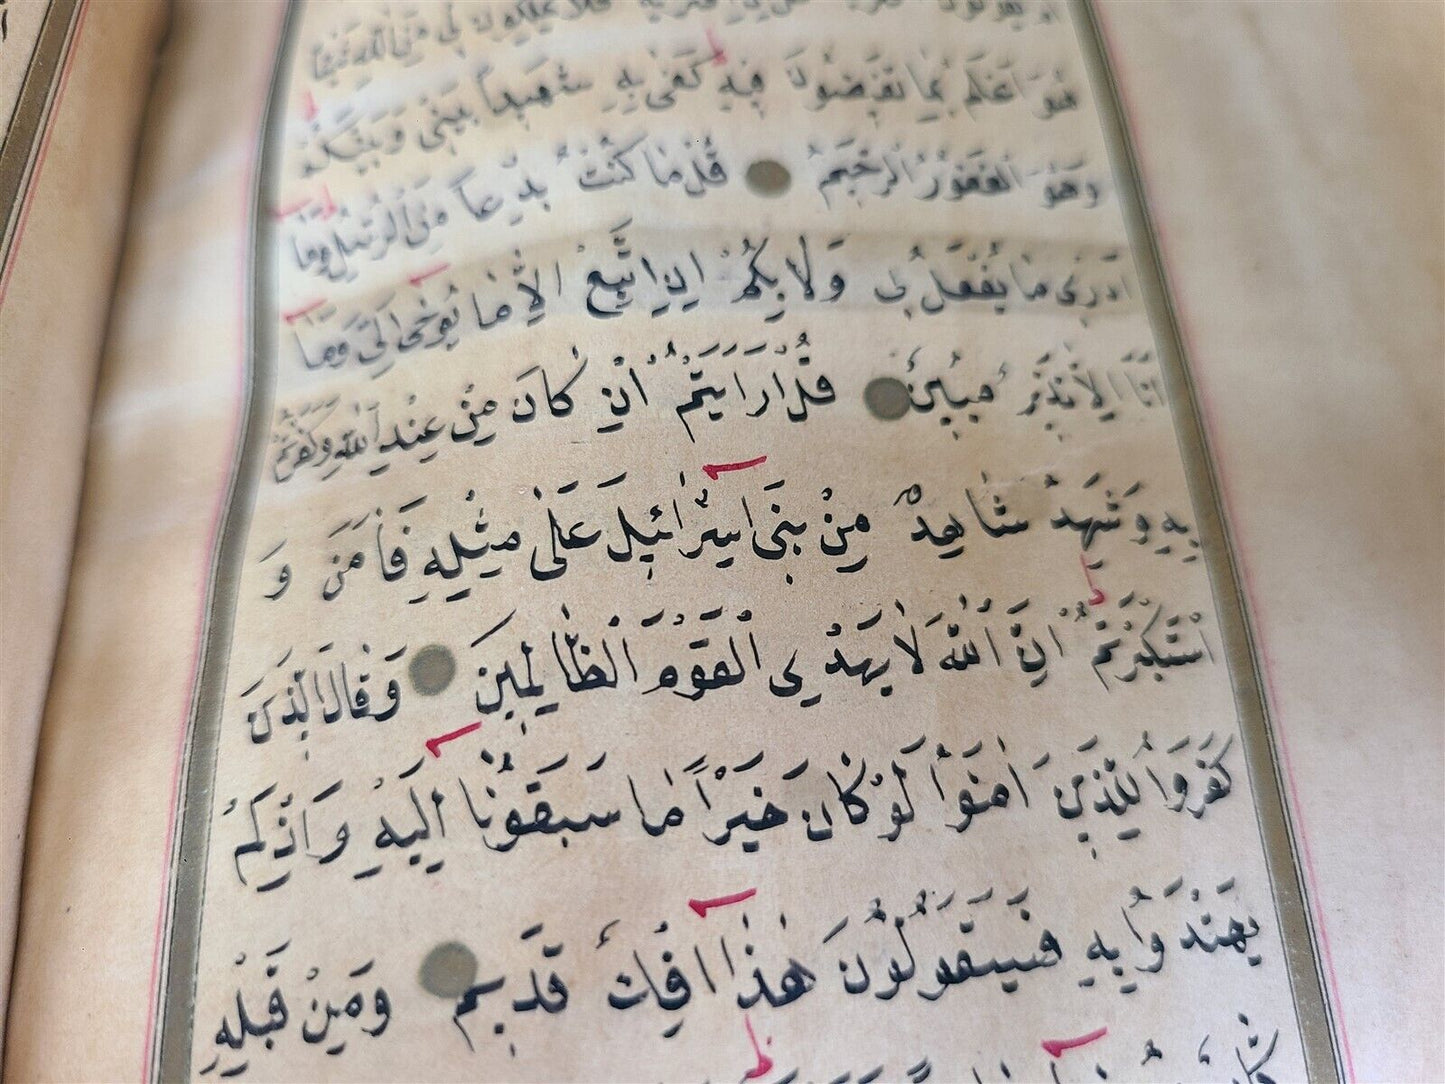 فلا تملكون لي من الله شيئا
هُوَ اَعْلَمُ بِمَا تُفٖيضُونَ فٖيهِ كَفٰى بِهٖ شَهٖيداً بَيْنٖى وَبَيْنَكُمْ
وَهُوَ الْغَفُورُ الرَّحٖيمُ قُلْ مَا كُنْتُ بِدْعاً مِنَ الرُّسُلِ وَمَٓا
اَدْرٖى مَا يُفْعَلُ بٖى وَلَا بِكُمْ اِنْ اَتَّبِعُ اِلَّا مَا يُوحٰٓى اِلَىَّ وَمَٓا
اَنَا۬ اِلَّا نَذٖيرٌ مُبٖينٌ قُلْ اَرَاَيْتُمْ اِنْ كَانَ مِنْ عِنْدِ اللّٰهِ وَكَفَرْتُمْ
بِهٖ وَشَهِدَ شَاهِدٌ مِنْ بَنٖٓى اِسْرَٓائٖلَ عَلٰى مِثْلِهٖ فَاٰمَنَ وَ
اسْتَكْبَرْتُمْ اِنَّ اللّٰهَ لَا يَهْدِى الْقَوْمَ الظَّالِمٖينَ وَقَالَ الَّذٖينَ
كَفَرُوا لِلَّذٖينَ اٰمَنُوا لَوْ كَانَ خَيْراً مَا سَبَقُونَٓا اِلَيْهِ وَاِذْ لَمْ
يَهْتَدُوا بِهٖ فَسَيَقُولُونَ هٰذَٓا اِفْكٌ قَدٖيمٌ وَمِنْ قَبْلِهٖ